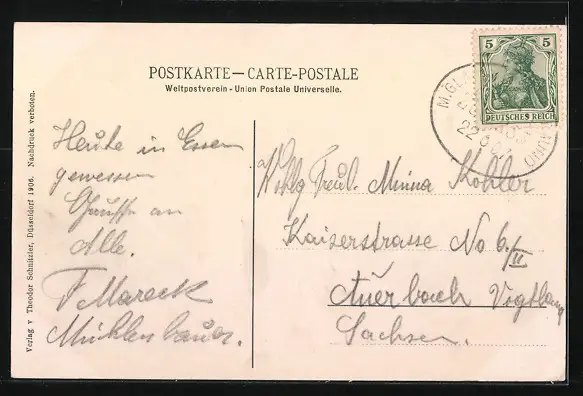 POSTKARTE — CARTE-POSTALE
Weltpostverein - Union Postale Universelle.
5 5
DEUTSCHES REICH
M.GLA
22
Verlag v Theodor Schnitzler, Düsseldorf 1906. Nachdruck verboten.
Heute in Essen
gewessen
an
Alle.
F Mareck
Mühlenbauer.
Freul. Minna Kohler
Kaiserstrasse No 6/II
Auerbach Vigtlang
Sachsen.